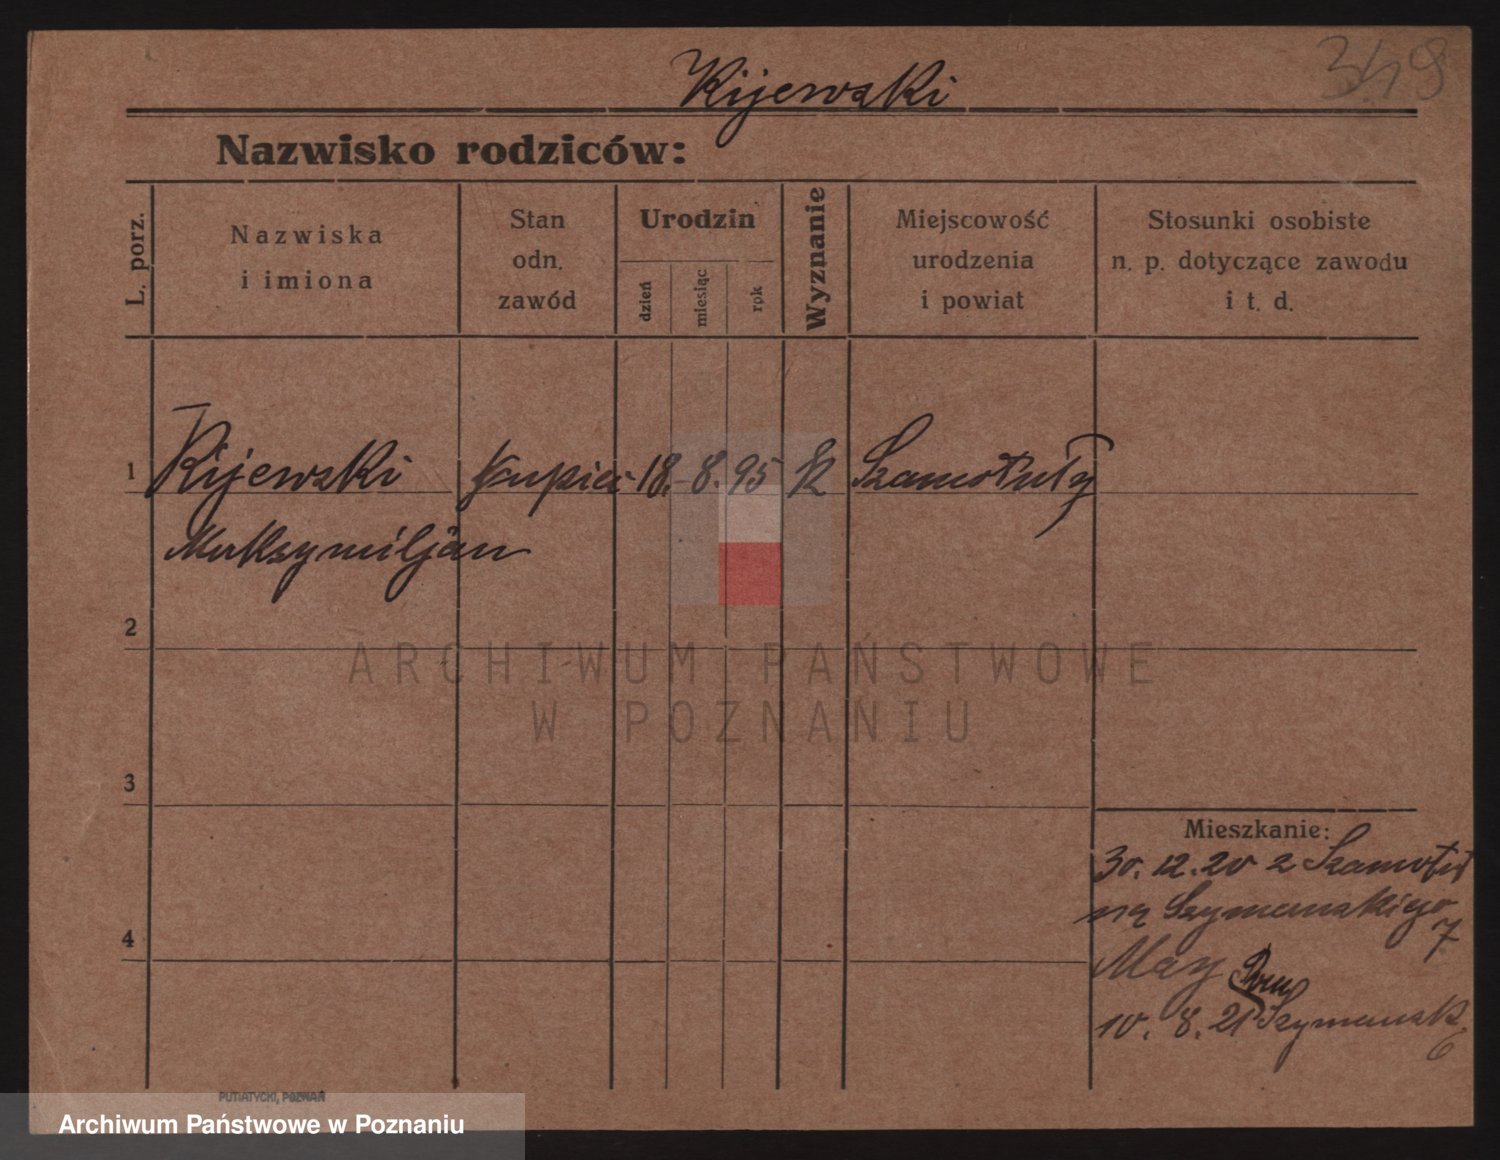 Kijewski
349
Nazwisko rodziców:
L. porz.
Nazwiska
i imiona
Stan
odn.
zawód
Urodzin
dzień
miesiąc
rok
Wyznanie
Miejscowość
urodzenia
i powiat
Stosunki osobiste
n. p. dotyczące zawodu
i t. d.
1
Kijewski
kupiec
18.
8.
95
K
Szamotuły
Maksymiljan
2
ARCHIWUM PAŃSTWOWE
W POZNANIU
3
4
Mieszkanie:
30.12.20 z Szamotuł
na Szymanskiego
7
May
10. 8. 21 Szymansk
6
PUTIATYCKI, POZNAŃ
Archiwum Państwowe w Poznaniu